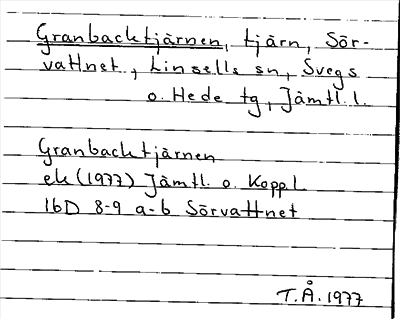 Granbacktjärnen, tjärn, Sör-
vattnet, Linsells sn, Svegs
o. Hede tg, Jämtl. l.
Granbacktjärnen
ek (1977) Jämtl. o. Kopp. l.
16D 8-9 a-b Sörvattnet
T.Å. 1977